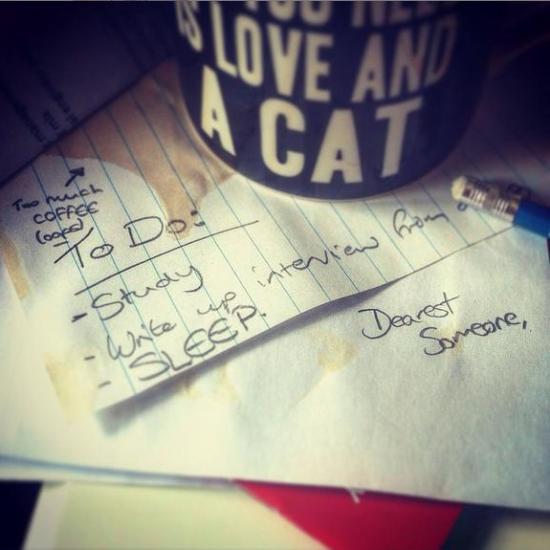 IS LOVE AND
A CAT
Too much
COFFEE
(oops)
To Do:
- Study
- Write up interview from
- SLEEP.
Dearest
Someone,